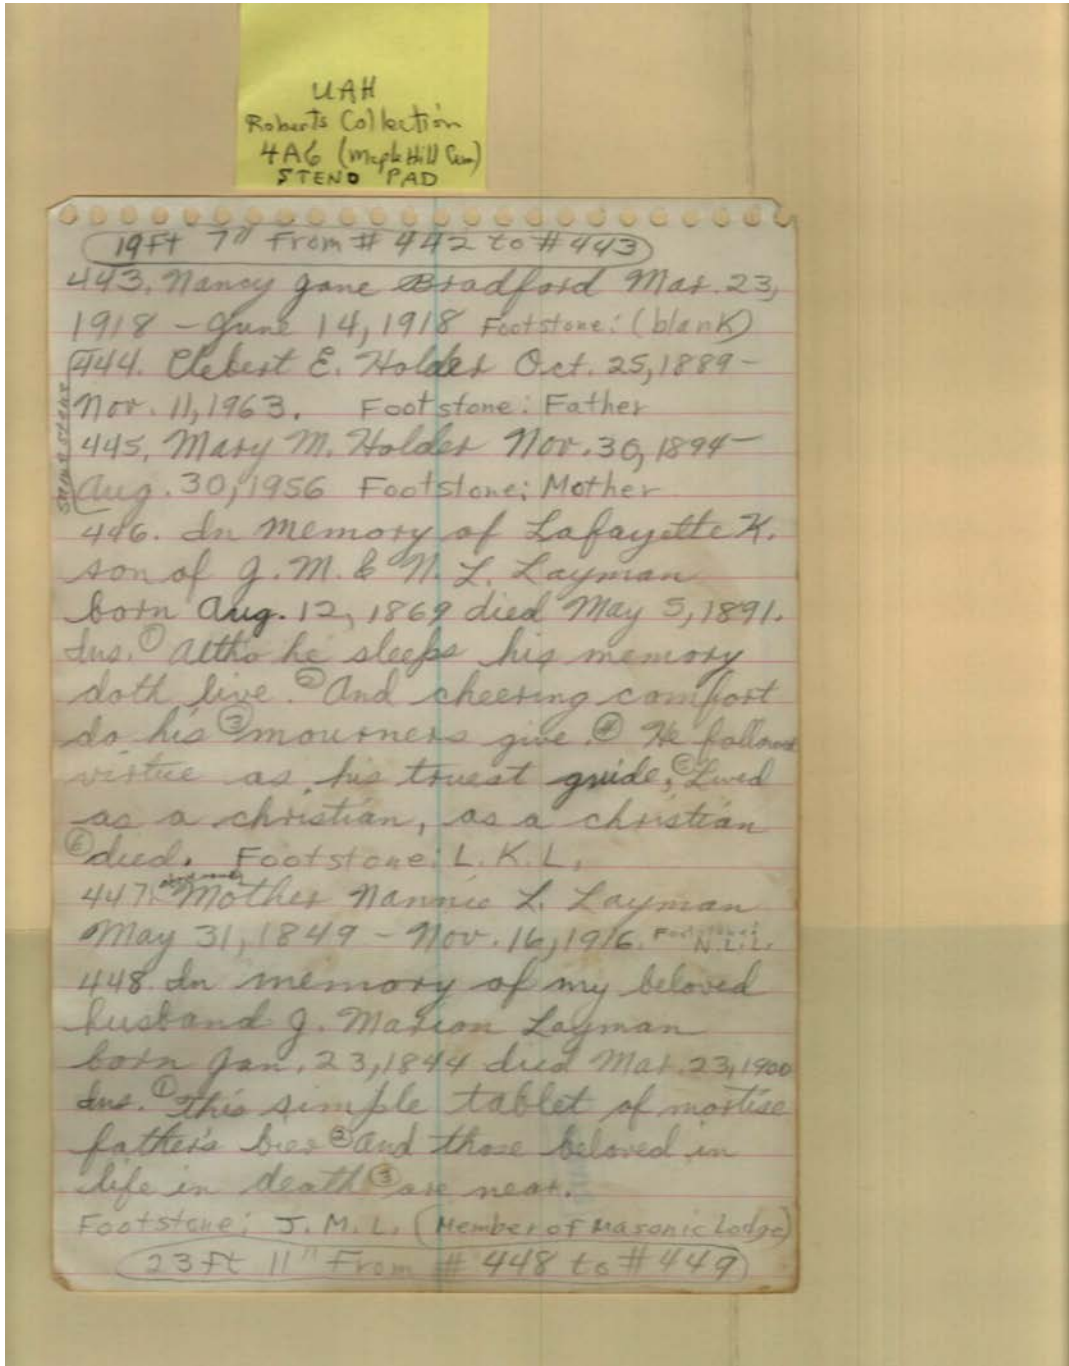 UAH
Roberts Collection
4A6 (Maple Hill Cem)
STENO PAD
19Ft 7" From # 442 to # 443
443. Nancy Jane Bradford Mar. 23,
1918 - June 14, 1918 Footstone: (blank)
444. Clebert E. Holder Oct. 25, 1889 -
Nov. 11, 1963. Footstone: Father
445. Mary M. Holder Nov. 30, 1894 -
Aug. 30, 1956 Footstone: Mother
same stone
446. In memory of Lafayette K.
son of J. M. & N. L. Layman
born Aug. 12, 1869 died May 5, 1891.
Ins. ① Altho he sleeps his memory
doth live. ② And cheering comfort
do his ③ mourners give. ④ He followed
virtue as his truest guide, ⑤ Lived
as a christian, as a christian
⑥ died. Footstone: L. K. L.
447. Mother Nannie L. Layman
May 31, 1849 - Nov. 16, 1916. Footstone: N. L. L.
448. In memory of my beloved
husband J. Marion Layman
born Jan. 23, 1844 died Mar. 23, 1900
Ins. ① This simple tablet of mortise
father's bier ② and those beloved in
life in death ③ are near.
Footstone: J. M. L. (Member of Masonic Lodge)
23Ft 11" From # 448 to # 449